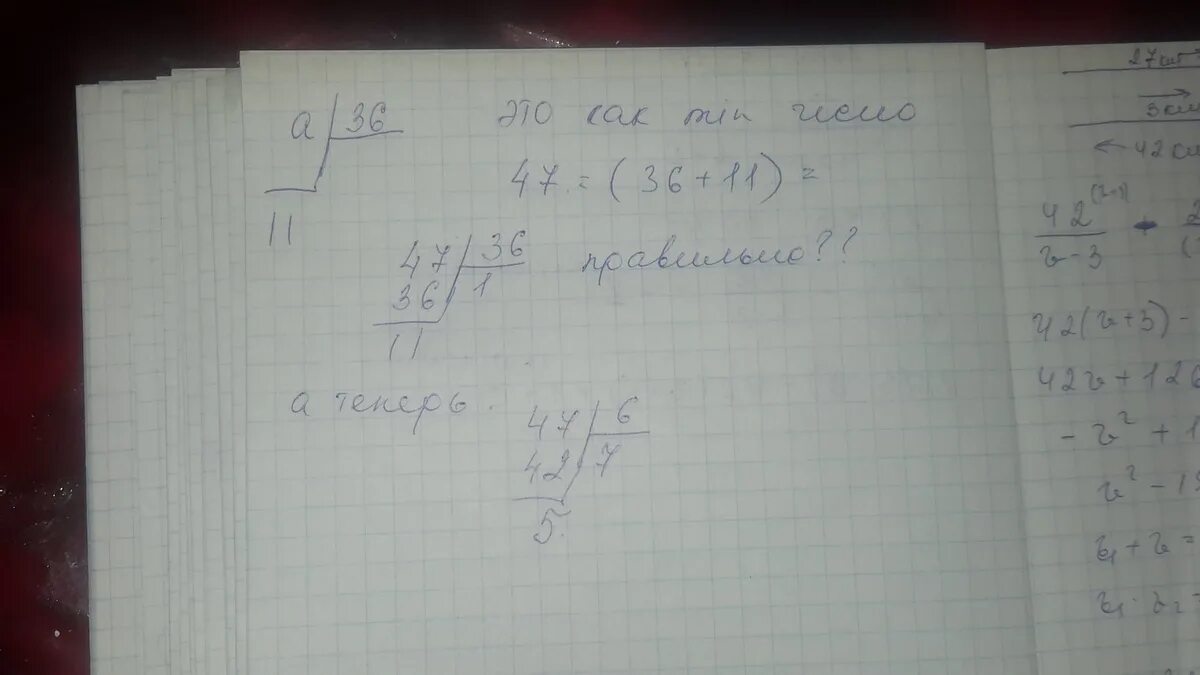 a 36
11
это как min число
47 = (36 + 11) =
47 36
36 1
11
правильно??
а теперь.
47 6
42 7
5.
27км
3км
← 42
42
v-3
42(v+3) -
42v + 126
- v² +
v² -